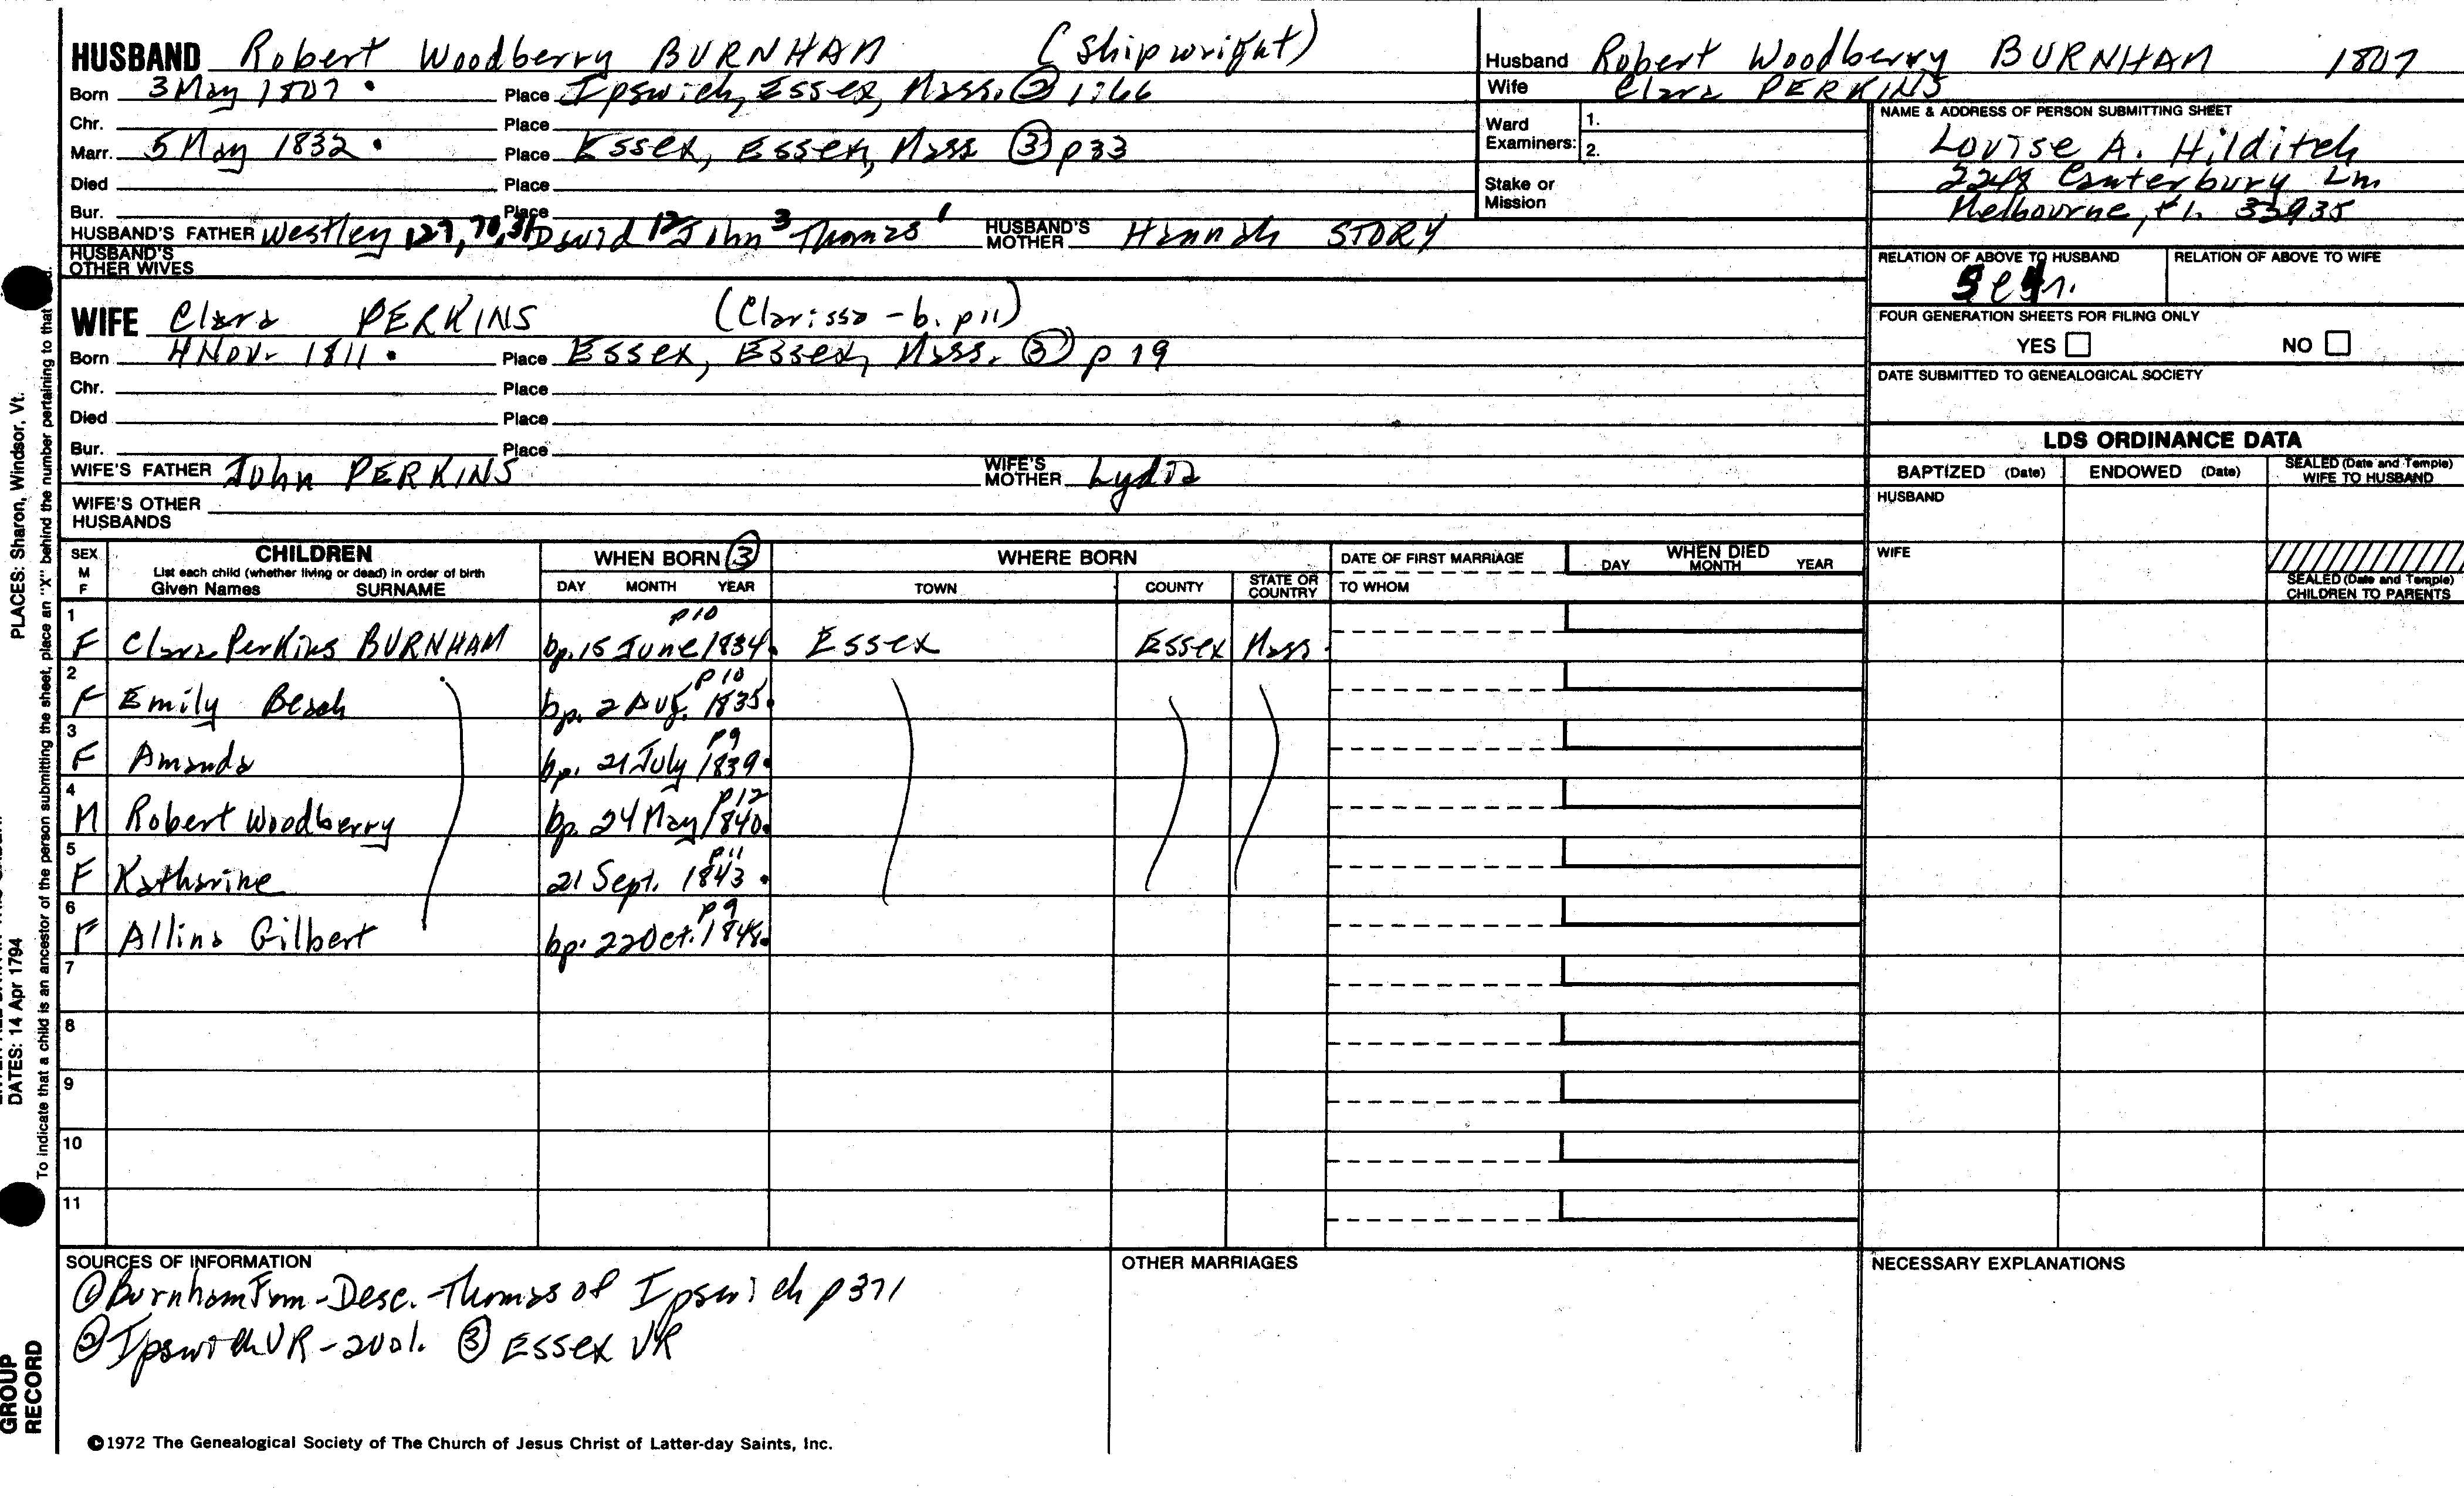 HUSBAND Robert Woodberry BURNHAM (Shipwright)
Born 3 May 1807 • Place Ipswich, Essex, Mass. ② 1:66
Chr. Place
Marr. 5 May 1832 • Place Essex, Essex, Mass ③ p33
Died Place
Bur. Place
HUSBAND'S FATHER Westley 127, 70, 31 David 12 John 3 Thomas 1 HUSBAND'S MOTHER Hannah STORY
HUSBAND'S OTHER WIVES
WIFE Clara PERKINS (Clarissa - b. p11)
Born 4 Nov. 1811 • Place Essex, Essex, Mass. ③ p 19
Chr. Place
Died Place
Bur. Place
WIFE'S FATHER John PERKINS WIFE'S MOTHER Lydia
WIFE'S OTHER HUSBANDS
Husband Robert Woodberry BURNHAM 1807
Wife Clara PERKINS
Ward Examiners: 1.
2.
Stake or Mission
NAME & ADDRESS OF PERSON SUBMITTING SHEET
Louise A. Hilditch
2248 Canterbury Ln
Melbourne, Fl. 32935
RELATION OF ABOVE TO HUSBAND RELATION OF ABOVE TO WIFE
FOUR GENERATION SHEETS FOR FILING ONLY
YES NO
DATE SUBMITTED TO GENEALOGICAL SOCIETY
LDS ORDINANCE DATA
BAPTIZED (Date) ENDOWED (Date) SEALED (Date and Temple) WIFE TO HUSBAND
HUSBAND
WIFE
SEALED (Date and Temple) CHILDREN TO PARENTS
SEX M F CHILDREN WHEN BORN ③ WHERE BORN DATE OF FIRST MARRIAGE WHEN DIED
List each child (whether living or dead) in order of birth
Given Names SURNAME DAY MONTH YEAR TOWN COUNTY STATE OR COUNTRY TO WHOM DAY MONTH YEAR
1 p10
F Clara Perkins BURNHAM bp. 15 June 1834. Essex Essex Mass.
2 p10
F Emily Beach bp. 2 Aug. 1835.
3 p9
F Amanda bp. 21 July 1839.
4 p12
M Robert Woodberry bp. 24 May 1840.
5 p11
F Katharine 21 Sept. 1843 •
6 p9
F Allina Gilbert bp. 22 Oct. 1848.
7
8
9
10
11
SOURCES OF INFORMATION
① Burnham Fam - Desc. - Thomas of Ipswich p371
② Ipswich VR - 2vol. ③ Essex VR
OTHER MARRIAGES
NECESSARY EXPLANATIONS
©1972 The Genealogical Society of The Church of Jesus Christ of Latter-day Saints, Inc.
PLACES: Sharon, Windsor, Vt.
DATES: 14 Apr 1794
To indicate that a child is an ancestor of the person submitting the sheet, place an "X" behind the number pertaining to that
GROUP
RECORD